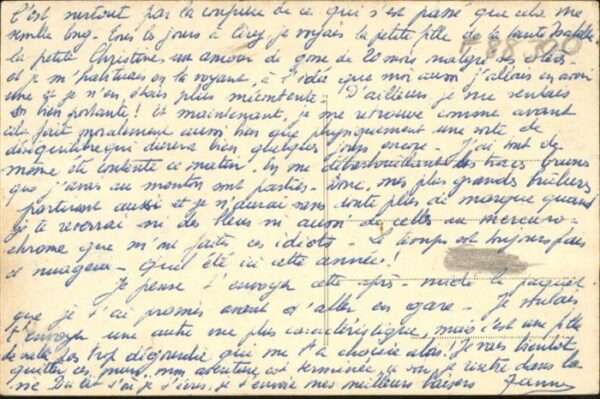 C'est surtout par la coupure de ce qui s'est passé que cela me
semble long - tous les jours à Cérey, je voyais la petite fille de la tante
la petite Christine, un amour de gosse de 20 mois malgré ses
et je m'habituais en la voyant, à l'idée que moi aussi j'allais en avoir
une et je n'en étais plus mécontente. D'ailleurs je me sentais
si bien portante! et maintenant, je me retrouve comme avant
cela fait moralement aussi bien que physiquement une sorte de
déséquilibre qui durera bien quelques jours encore - J'ai tout de
même été contente ce matin. En me débarbouillant les traces brunes
que j'avais au menton sont parties - donc, mes plus grandes brûlures
partiront aussi et je n'aurai sans doute plus de marque quand
je te reverrai ni des bleus ni aucun de celles au mercuro-
chrome que m'ont faites ces idiots - Le temps est toujours frais
et nuageux - Quel été ici cette année!
Je pense t'envoyer cette après-midi le paquet
que je t'ai promis avant d'aller en gare - Je voulais
t'envoyer une autre vue plus caractéristique, mais c'est une fille
de salle pas trop dégourdie qui me l'a choisie alors! Je vais bientôt
quitter ces murs, mon aventure est terminée ce soir, je rentre dans la
vie Du lit d'où je t'écris, je t'envoie mes meilleurs baisers
488.00